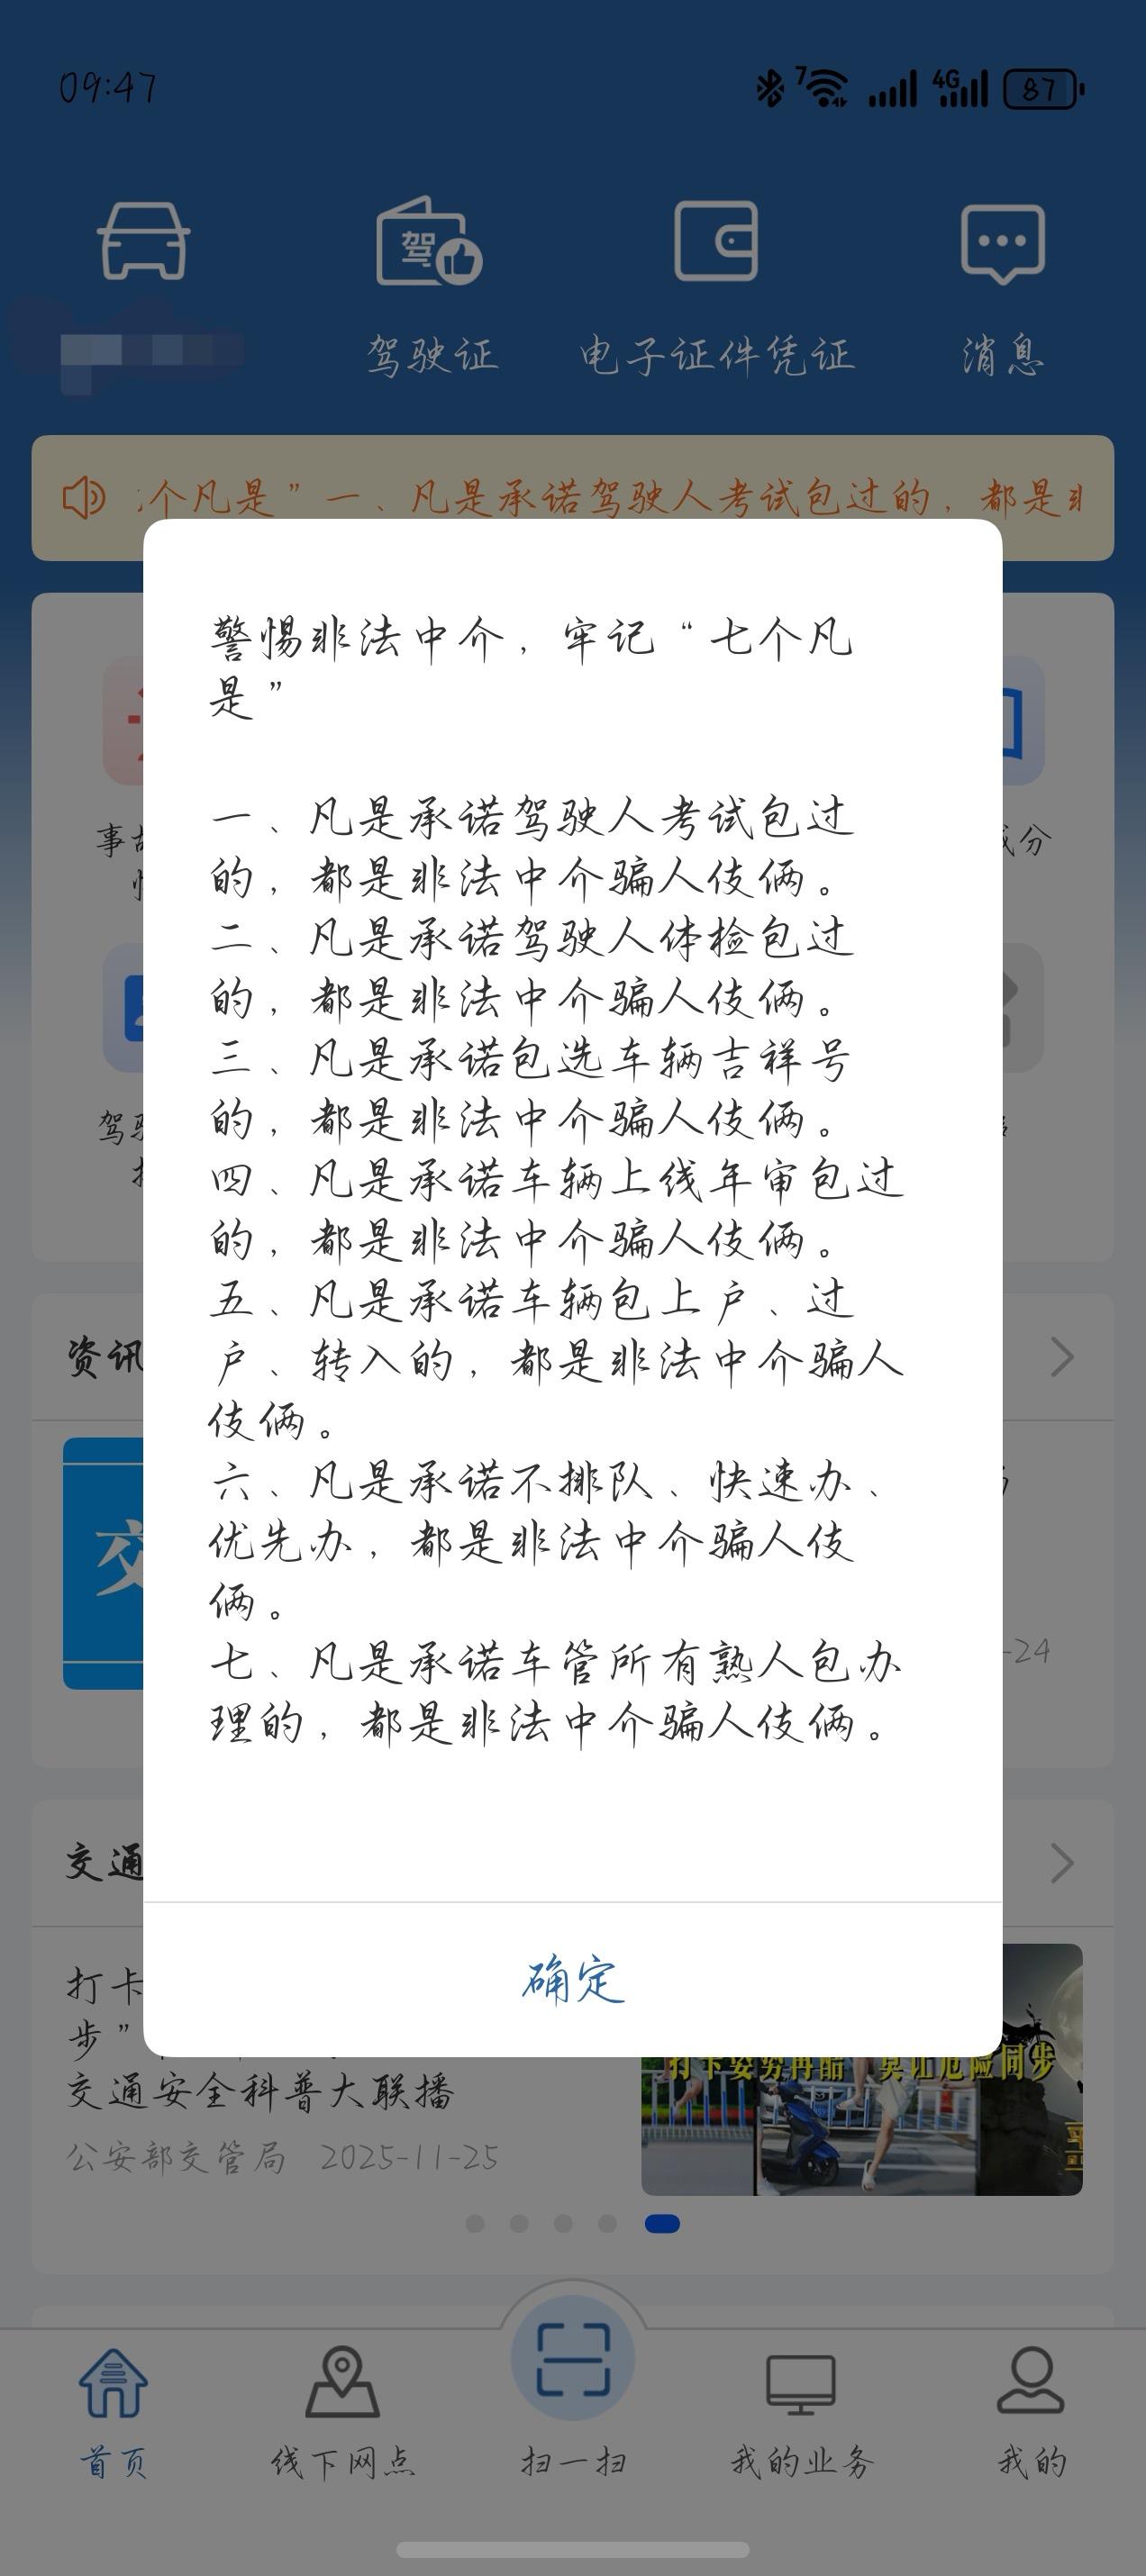 09:47
7
4G
87
驾
驾驶证
电子证件凭证
消息
个凡是”一、凡是承诺驾驶人考试包过的，都是
警惕非法中介，牢记“七个凡
是”
一、凡是承诺驾驶人考试包过
的，都是非法中介骗人伎俩。
二、凡是承诺驾驶人体检包过
的，都是非法中介骗人伎俩。
三、凡是承诺包选车辆吉祥号
的，都是非法中介骗人伎俩。
四、凡是承诺车辆上线年审包过
的，都是非法中介骗人伎俩。
五、凡是承诺车辆包上户、过
户、转入的，都是非法中介骗人
伎俩。
六、凡是承诺不排队、快速办、
优先办，都是非法中介骗人伎
俩。
七、凡是承诺车管所有熟人包办
理的，都是非法中介骗人伎俩。
确定
事
分
驾
资讯
交
-24
交通
打卡
步”
交通安全科普大联播
公安部交管局 2025-11-25
打卡姿势再酷 莫让危险同步
首页
线下网点
扫一扫
我的业务
我的